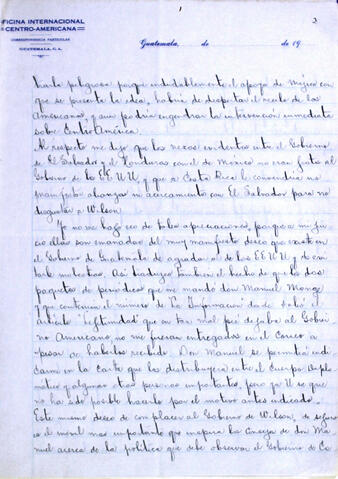 OFICINA INTERNACIONAL
CENTRO-AMERICANA
CORRESPONDENCIA PARTICULAR
GUATEMALA, C.A.
3
Guatemala, de de 19
peligrosa porque indudablemente el apoyo de Méjico con
que se presenta la idea, habría de despertar el recelo de los
Americanos, y aun podría engendrar la intervención inmediata
sobre Centro América.
Al respecto me dijo que los nexos existentes entre el Gobierno
de El Salvador y el Honduras con el de México no eran gratos al
Gobierno de los EE UU y que a Costa Rica le convendría no
manifestar alianza ni acercamiento con El Salvador para no
disgustar a Wilson.
Yo no hago eco de tales apreciaciones, porque a mi jui-
cio ellas son emanadas del muy manifiesto deseo que existe en
el Gobierno de Guatemala de agradar a los EE UU y de evi-
tarle molestias. Así traduzco también el hecho de que los dos
paquetes de periódicos que me mandó don Manuel Monge
y que contenían el número de "La Información" donde salió el
artículo "Lejitimidad" que en tan mal pie dejaba al Gobier-
no Americano, no me fueran entregados en el Correo a
pesar de haberlos recibido. Don Manuel se permitía indi-
carme en la carta que los distribuyera entre el Cuerpo Diplo-
mático y algunas otras personas importantes, pero ya U ve que
no ha sido posible hacerlo por el motivo antes indicado.
Este mismo deseo de complacer al Gobierno de Wilson, de segu-
ro es el móvil mas importante que inspira los Consejos de don Ma
nuel acerca de la política que debe observar el Gobierno de Co